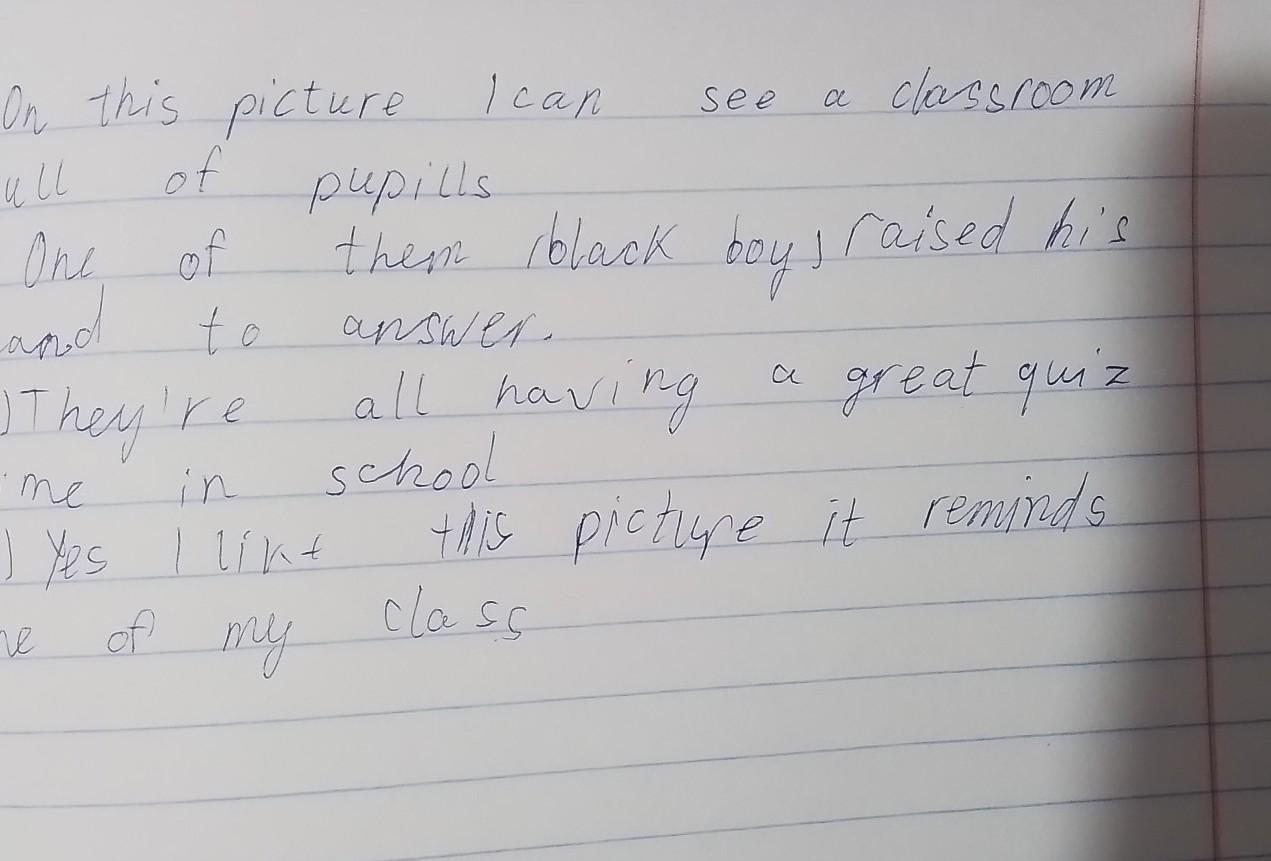 On this picture I can see a classroom
ull of pupills
One of them (black boy) raised his
and to answer.
) They're all having a great quiz
me in school
) Yes I like this picture it reminds
e of my class